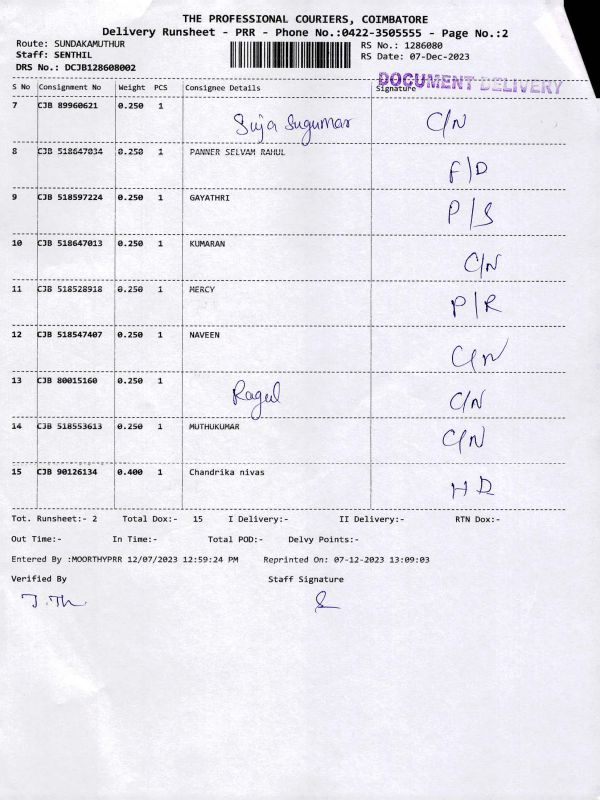 THE PROFESSIONAL COURIERS, COIMBATORE
Delivery Runsheet - PRR - Phone No.:0422-3505555 - Page No.:2
Route: SUNDAKAMUTHUR RS No.: 1286080
Staff: SENTHIL RS Date: 07-Dec-2023
DRS No.: DCJB128608002
DOCUMENT DELIVERY
S No Consignment No Weight PCS Consignee Details Signature
7 CJB 89960621 0.250 1 Suja Sugumar C/N
8 CJB 518647034 0.250 1 PANNER SELVAM RAHUL F/D
9 CJB 518597224 0.250 1 GAYATHRI P/S
10 CJB 518647013 0.250 1 KUMARAN C/N
11 CJB 518528918 0.250 1 MERCY P/R
12 CJB 518547407 0.250 1 NAVEEN C/N
13 CJB 80015160 0.250 1 Ragul C/N
14 CJB 518553613 0.250 1 MUTHUKUMAR C/N
15 CJB 90126134 0.400 1 Chandrika nivas
Tot. Runsheet:- 2 Total Dox:- 15 I Delivery:- II Delivery:- RTN Dox:-
Out Time:- In Time:- Total POD:- Delvy Points:-
Entered By :MOORTHYPRR 12/07/2023 12:59:24 PM Reprinted On: 07-12-2023 13:09:03
Verified By Staff Signature